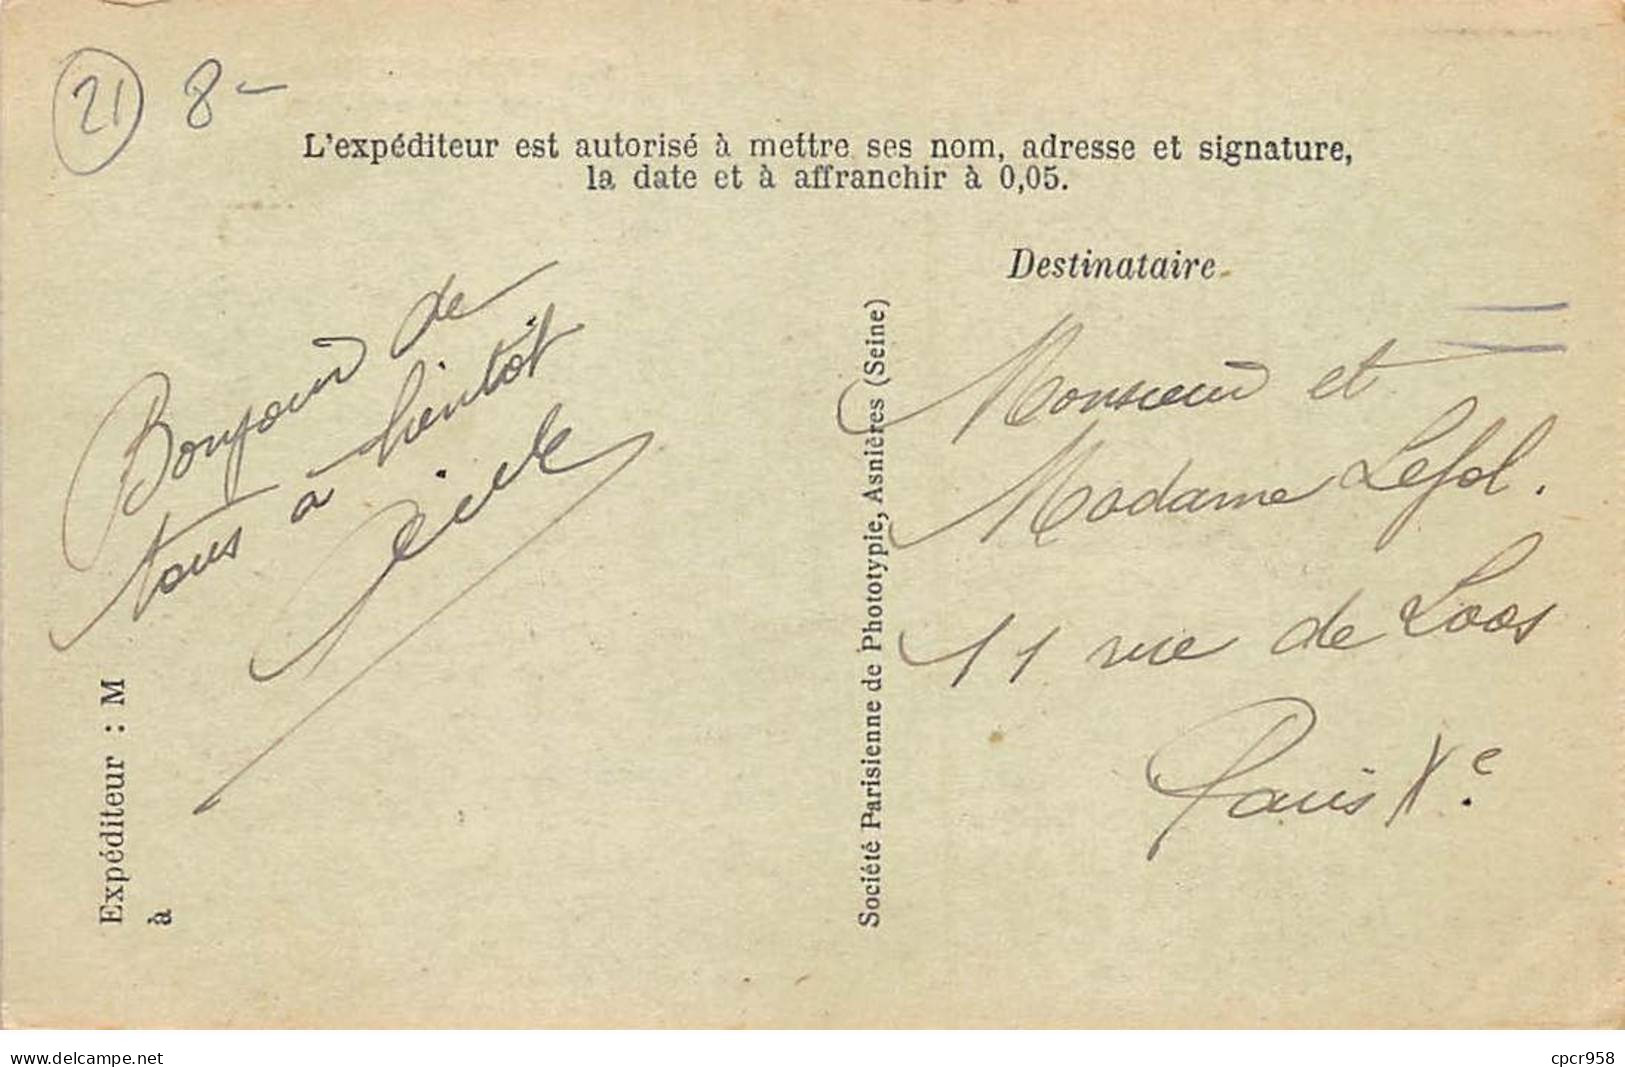 21 8-
L'expéditeur est autorisé à mettre ses nom, adresse et signature,
la date et à affranchir à 0,05.
Destinataire
Bonjour de
tous à bientôt
Monsieur et
Madame Lefol.
11 rue de Loos
Paris Xe.
Expéditeur : M
à
Société Parisienne de Phototypie, Asnières (Seine)
www.delcampe.net
cpcr958